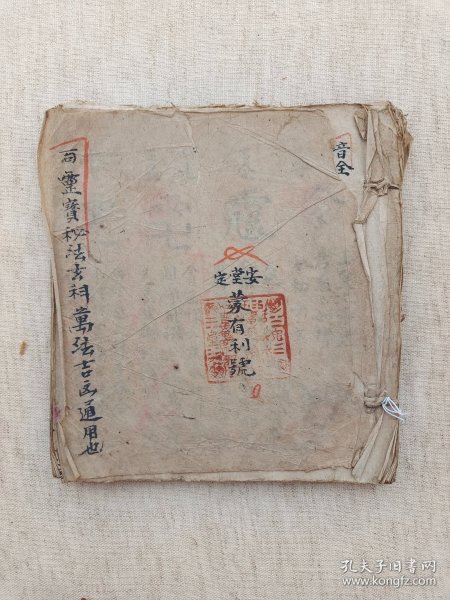 音全
安定堂
蒙有利號
靈寶秘法玄科萬法吉凶通用也
孔夫子旧书网
www.kongfz.com